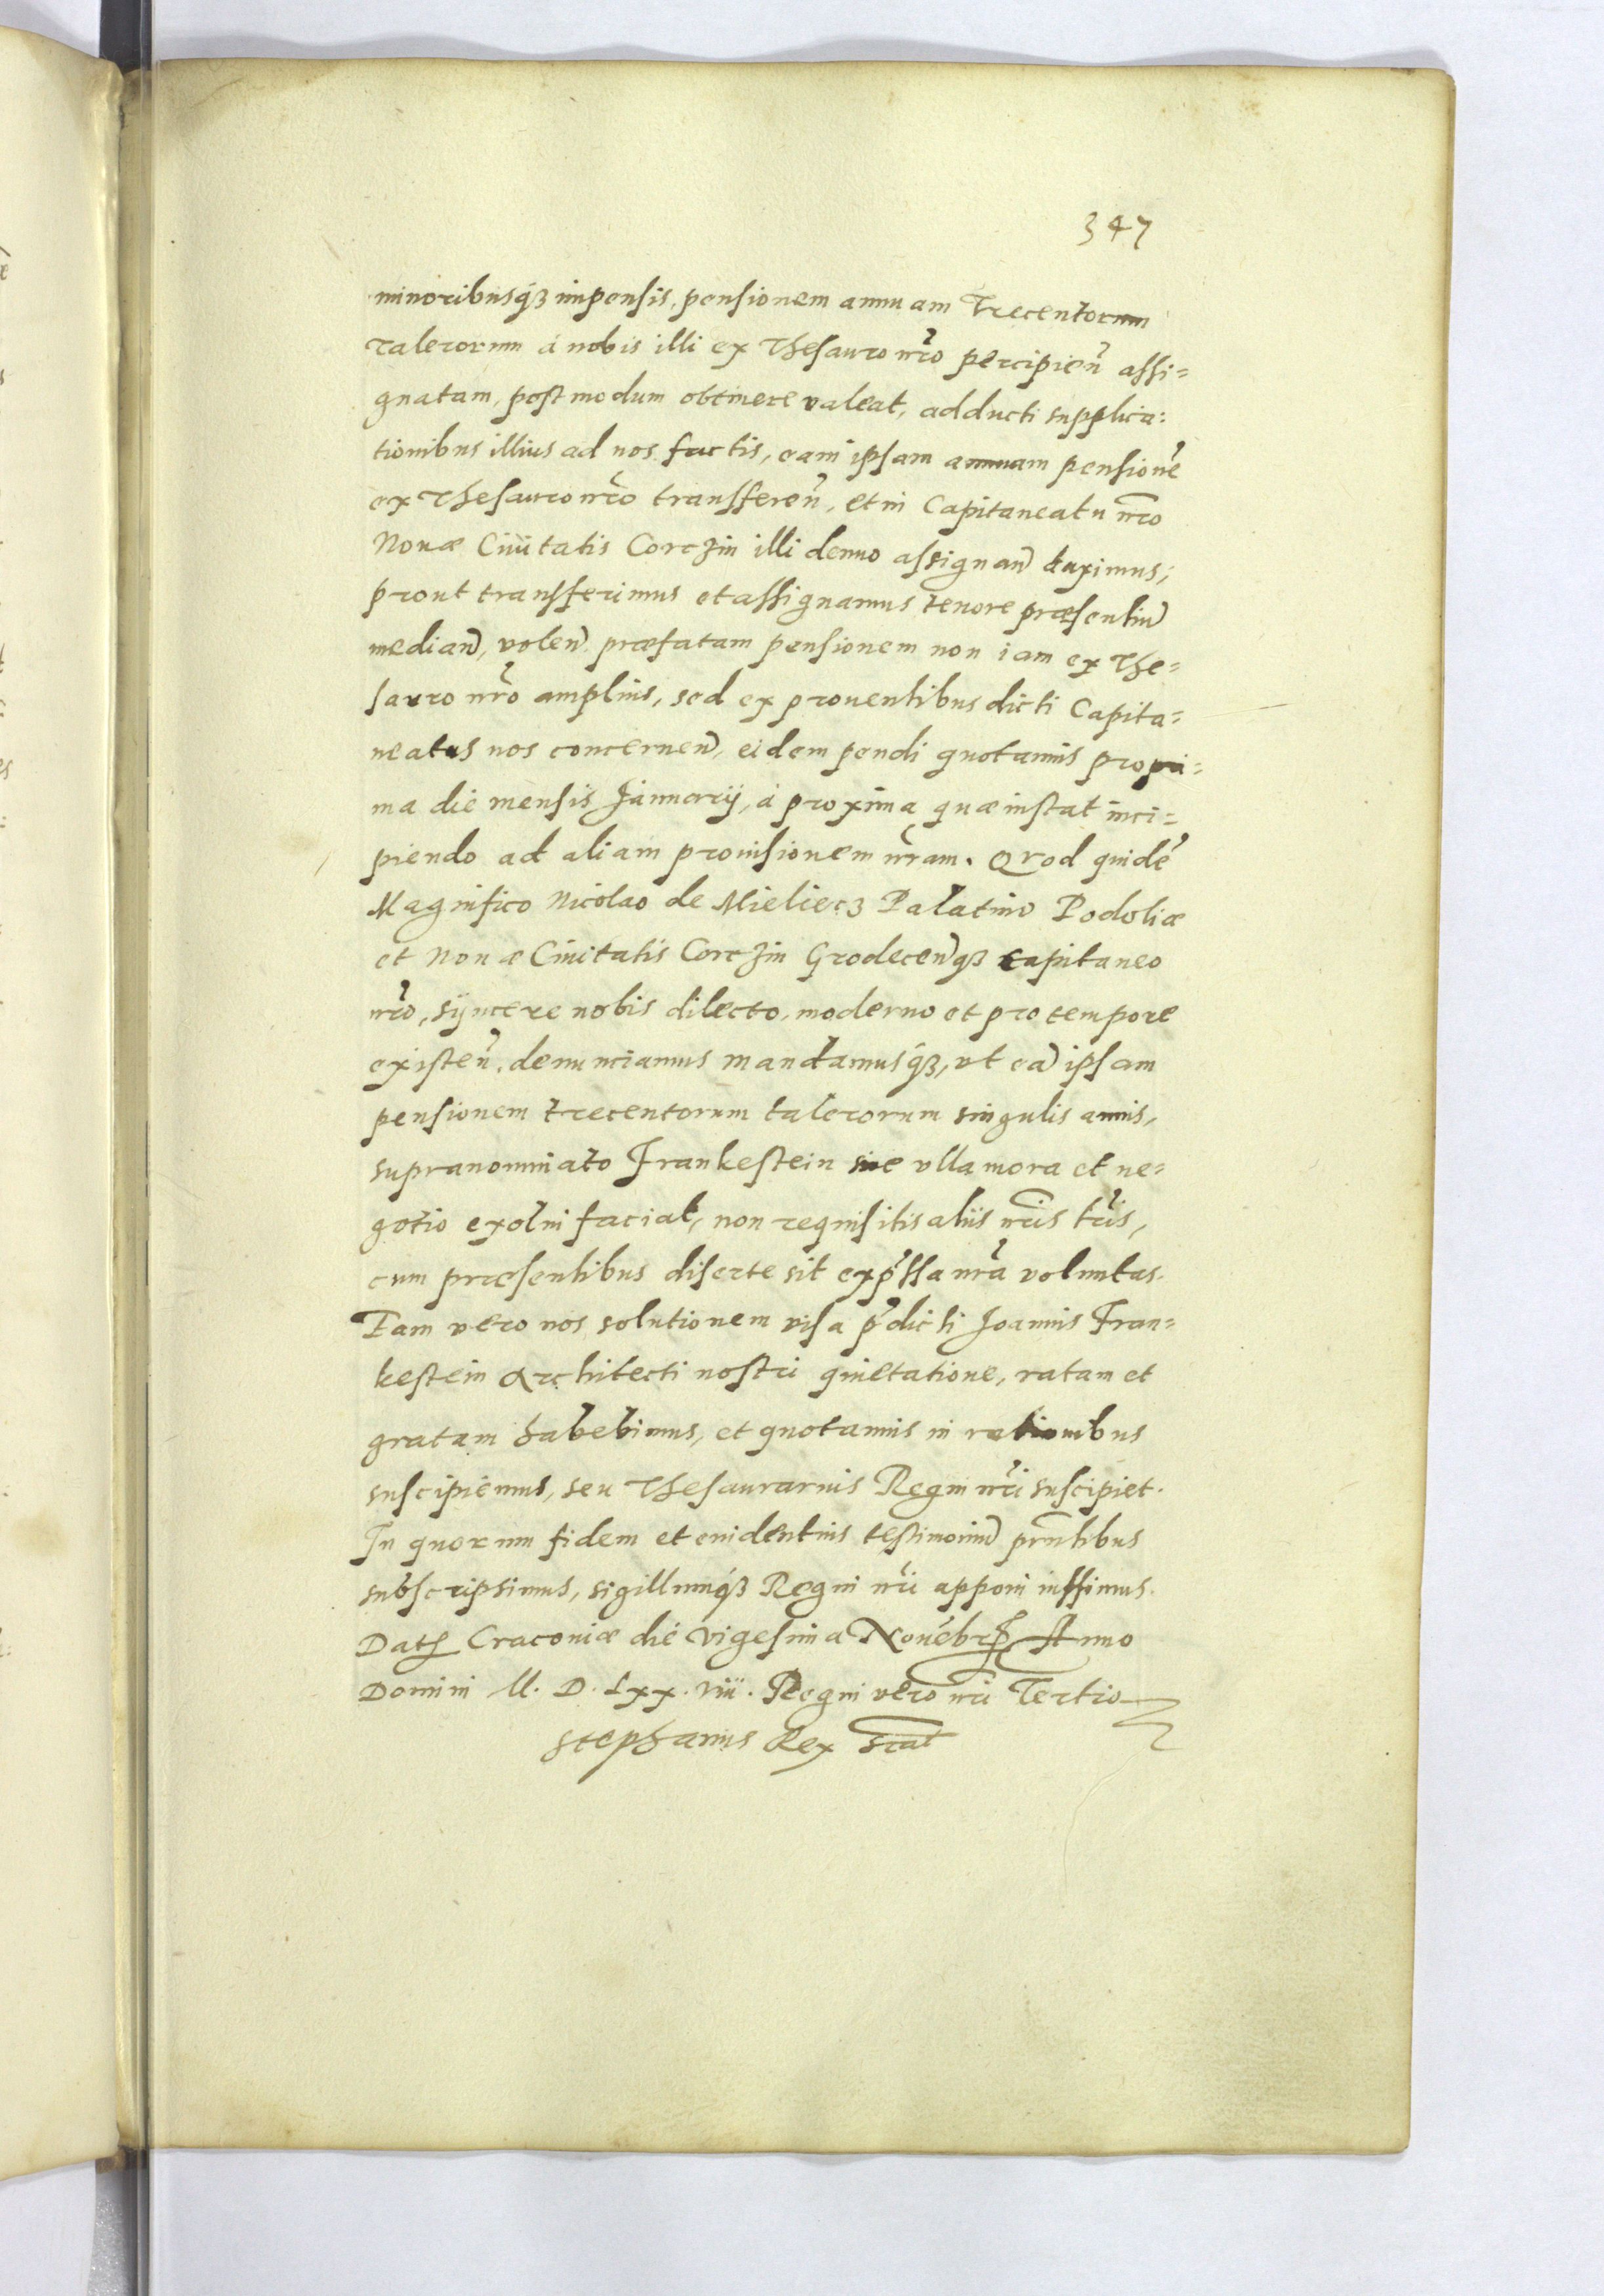 347
minoribusq́ꝫ impensis, pensionem annuam Trecentorum
Talerorum á nobis illi ex Thesauro nr̃o percipień assi=
gnatam, postmodum obtinere valeat, adducti supplica:
tionibus illius ad nos factis, eam ipsam annuam pensionẽ
ex Thesauro nr̃o transfereñ, et in Capitaneatu nr̃o
Nouæ Ciuitatis Corczin illi denuo assignañ duximus;
prout transferimus et assignamus tenore præsentiũ
mediañ, voleñ præfatam pensionem non iam ex The=
sauro nr̃o amplius, sed ex prouentibus dicti Capita=
neatus nos concerneñ, eidem pendi quotannis pro pri=
ma die mensis Januarij, á proxima quæ instat inci=
piendo ad aliam prouisionem nr̃am. Quod quidẽ
Magnifico Nicolao de Mieliecz Palatino Podoliæ
et Nouæ Ciuitatis Corczin Grodeceñqꝫ Capitaneo
nr̃o, syncere nobis dilecto, moderno et pro tempore
existeñ. denunciamus mandamusq́ꝫ, vt eã ipsam
pensionem trecentorum talerorum singulis annis,
supranominato Frankestein sine vlla mora et ne=
gotio exolui faciat, non requisitis aliis nr̃is lr̃is,
cum præsentibus diserte sit exp̃ssa nr̃a voluntas.
Eam vero nos solutionem visa p̃dicti Joannis Fran=
kestein Architecti nostri quietatione, ratam et
gratam habebimus, et quotannis in rationibus
suscipiemus, seu Thesaurarius Regni nr̃i suscipiet.
In quorum fidem et euidentius testimoniũ pr̃ntibus
subscripsimus, sigillumq́ꝫ Regni nr̃i apponi iussimus.
Datꝭ Cracouiæ die vigesima Nouẽbrꝭ Anno
Domini M. D. Lxx. viii. Regni vero nr̃i Tertio
Stephanus Rex sst